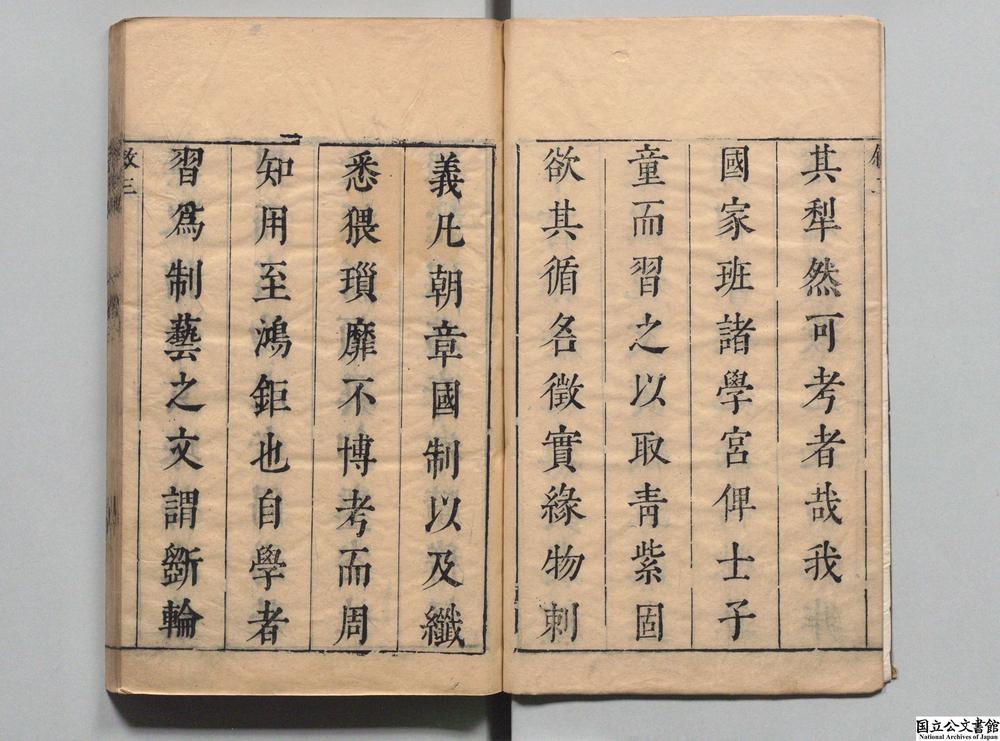 其犁然可考者哉我
國家班諸學宮俾士子
童而習之以取青紫固
欲其循名徵實緣物刺
義凡朝章國制以及纖
悉猥瑣靡不博考而周
知用至鴻鉅也自學者
習爲制藝之文謂斵輪
敘三
国立公文書館
National Archives of Japan